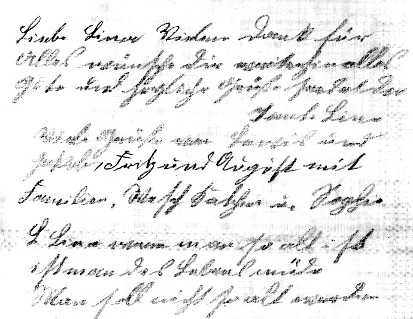 Liebe Lina Vielen Dank für
Alles wünsche Dir weiterhin alles
Gute und herzliche Grüße sendet Dir
Tante Lina
Viele Grüße von und
Fritz und August mit
Familien, Kathr u. Sophie
L Lina wenn man so alt ist
ist man des Lebens müde
Man soll nicht so alt werden